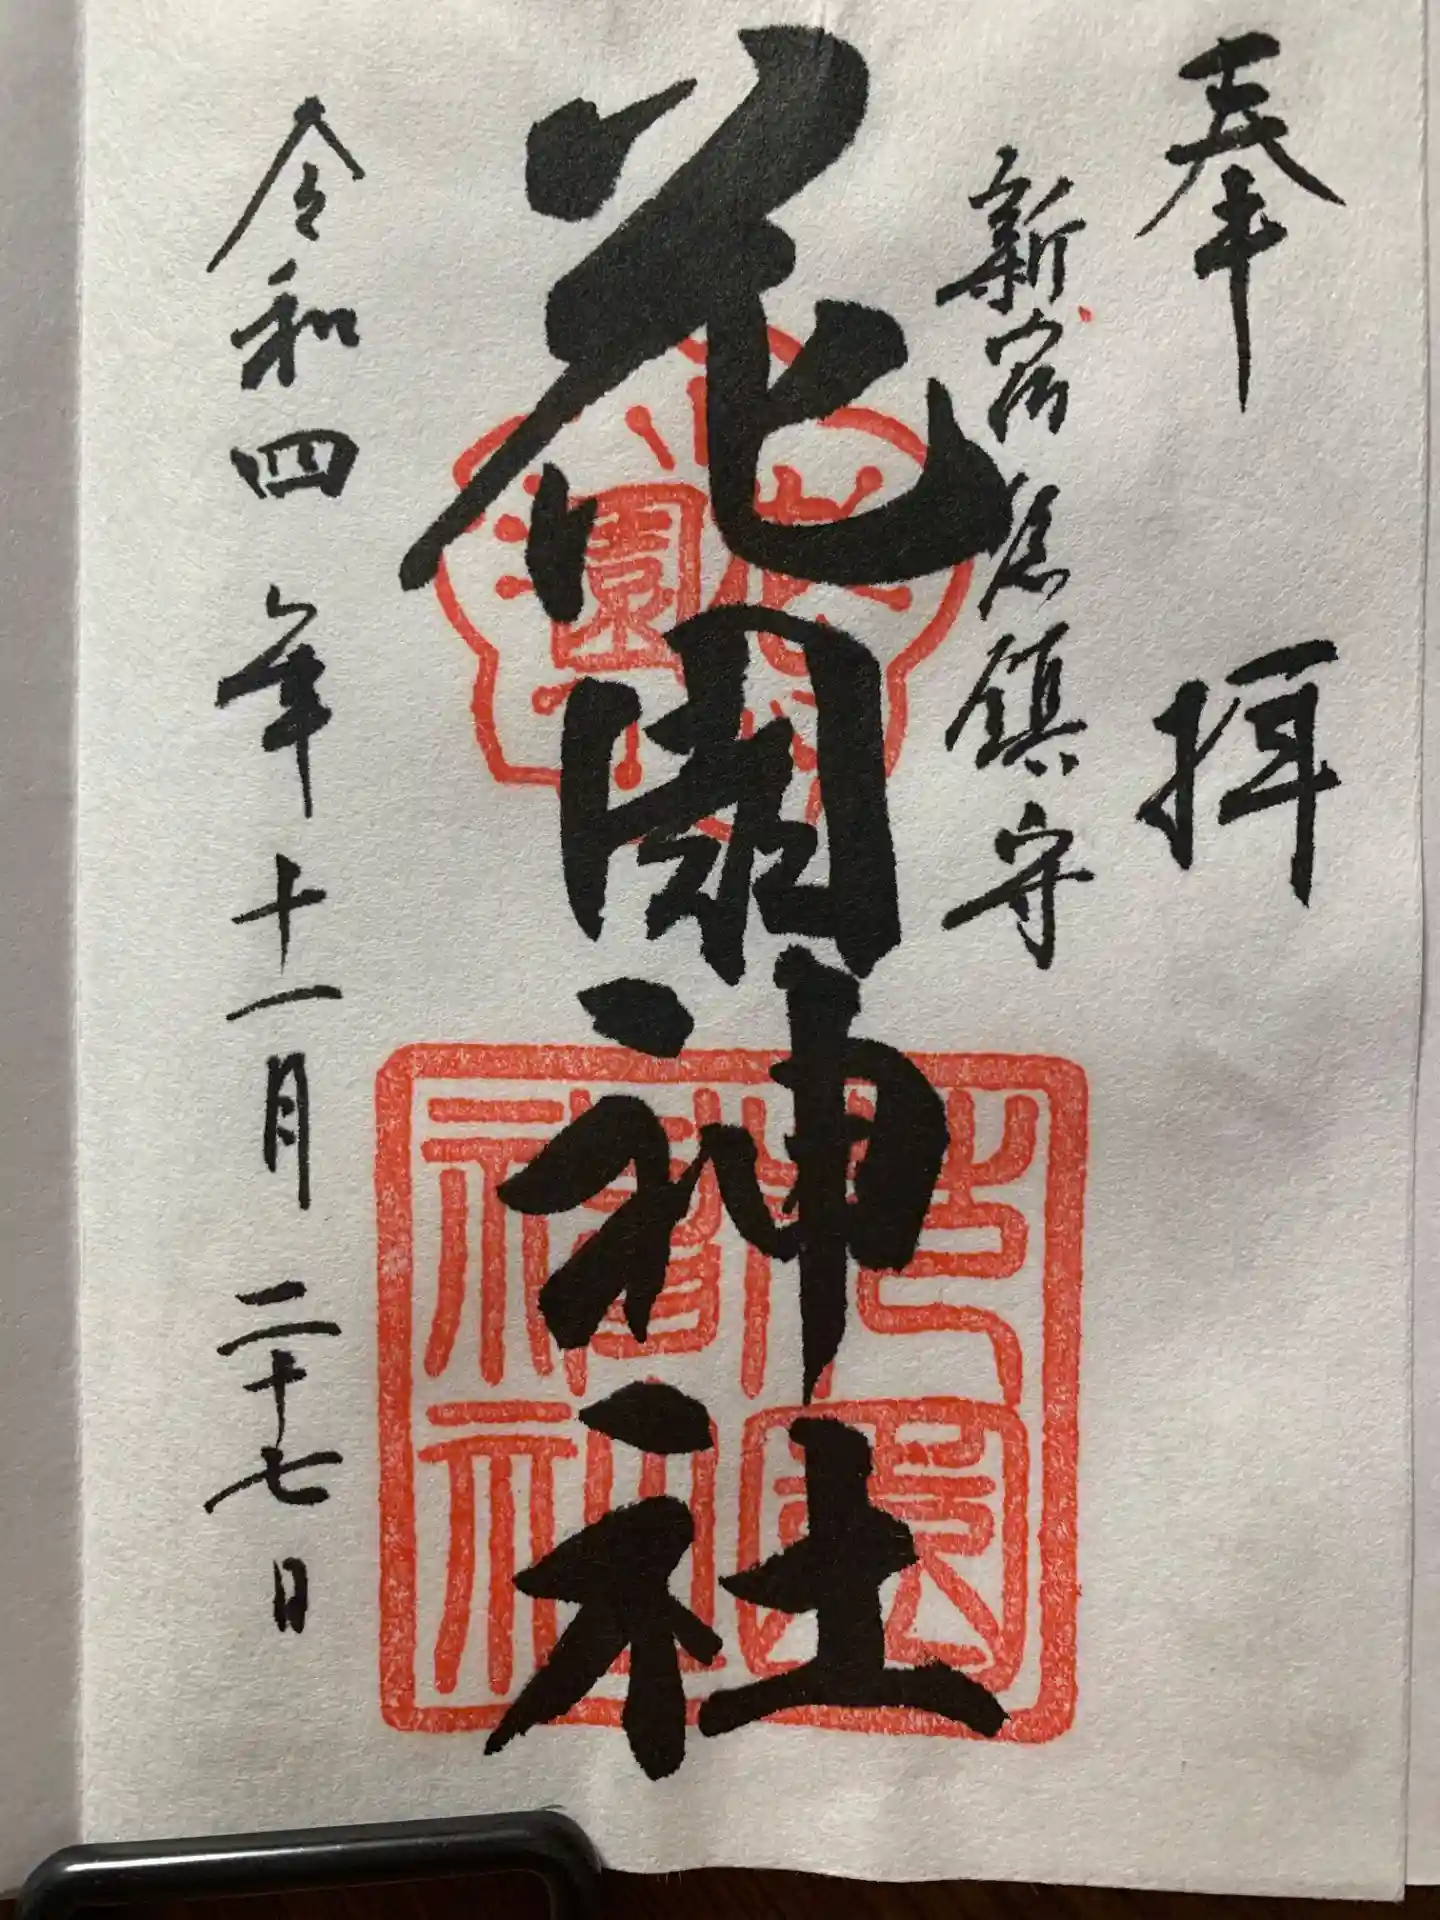 奉拝
新宿總鎮守
花園神社
令和四年十一月二十七日
花園
花園神社